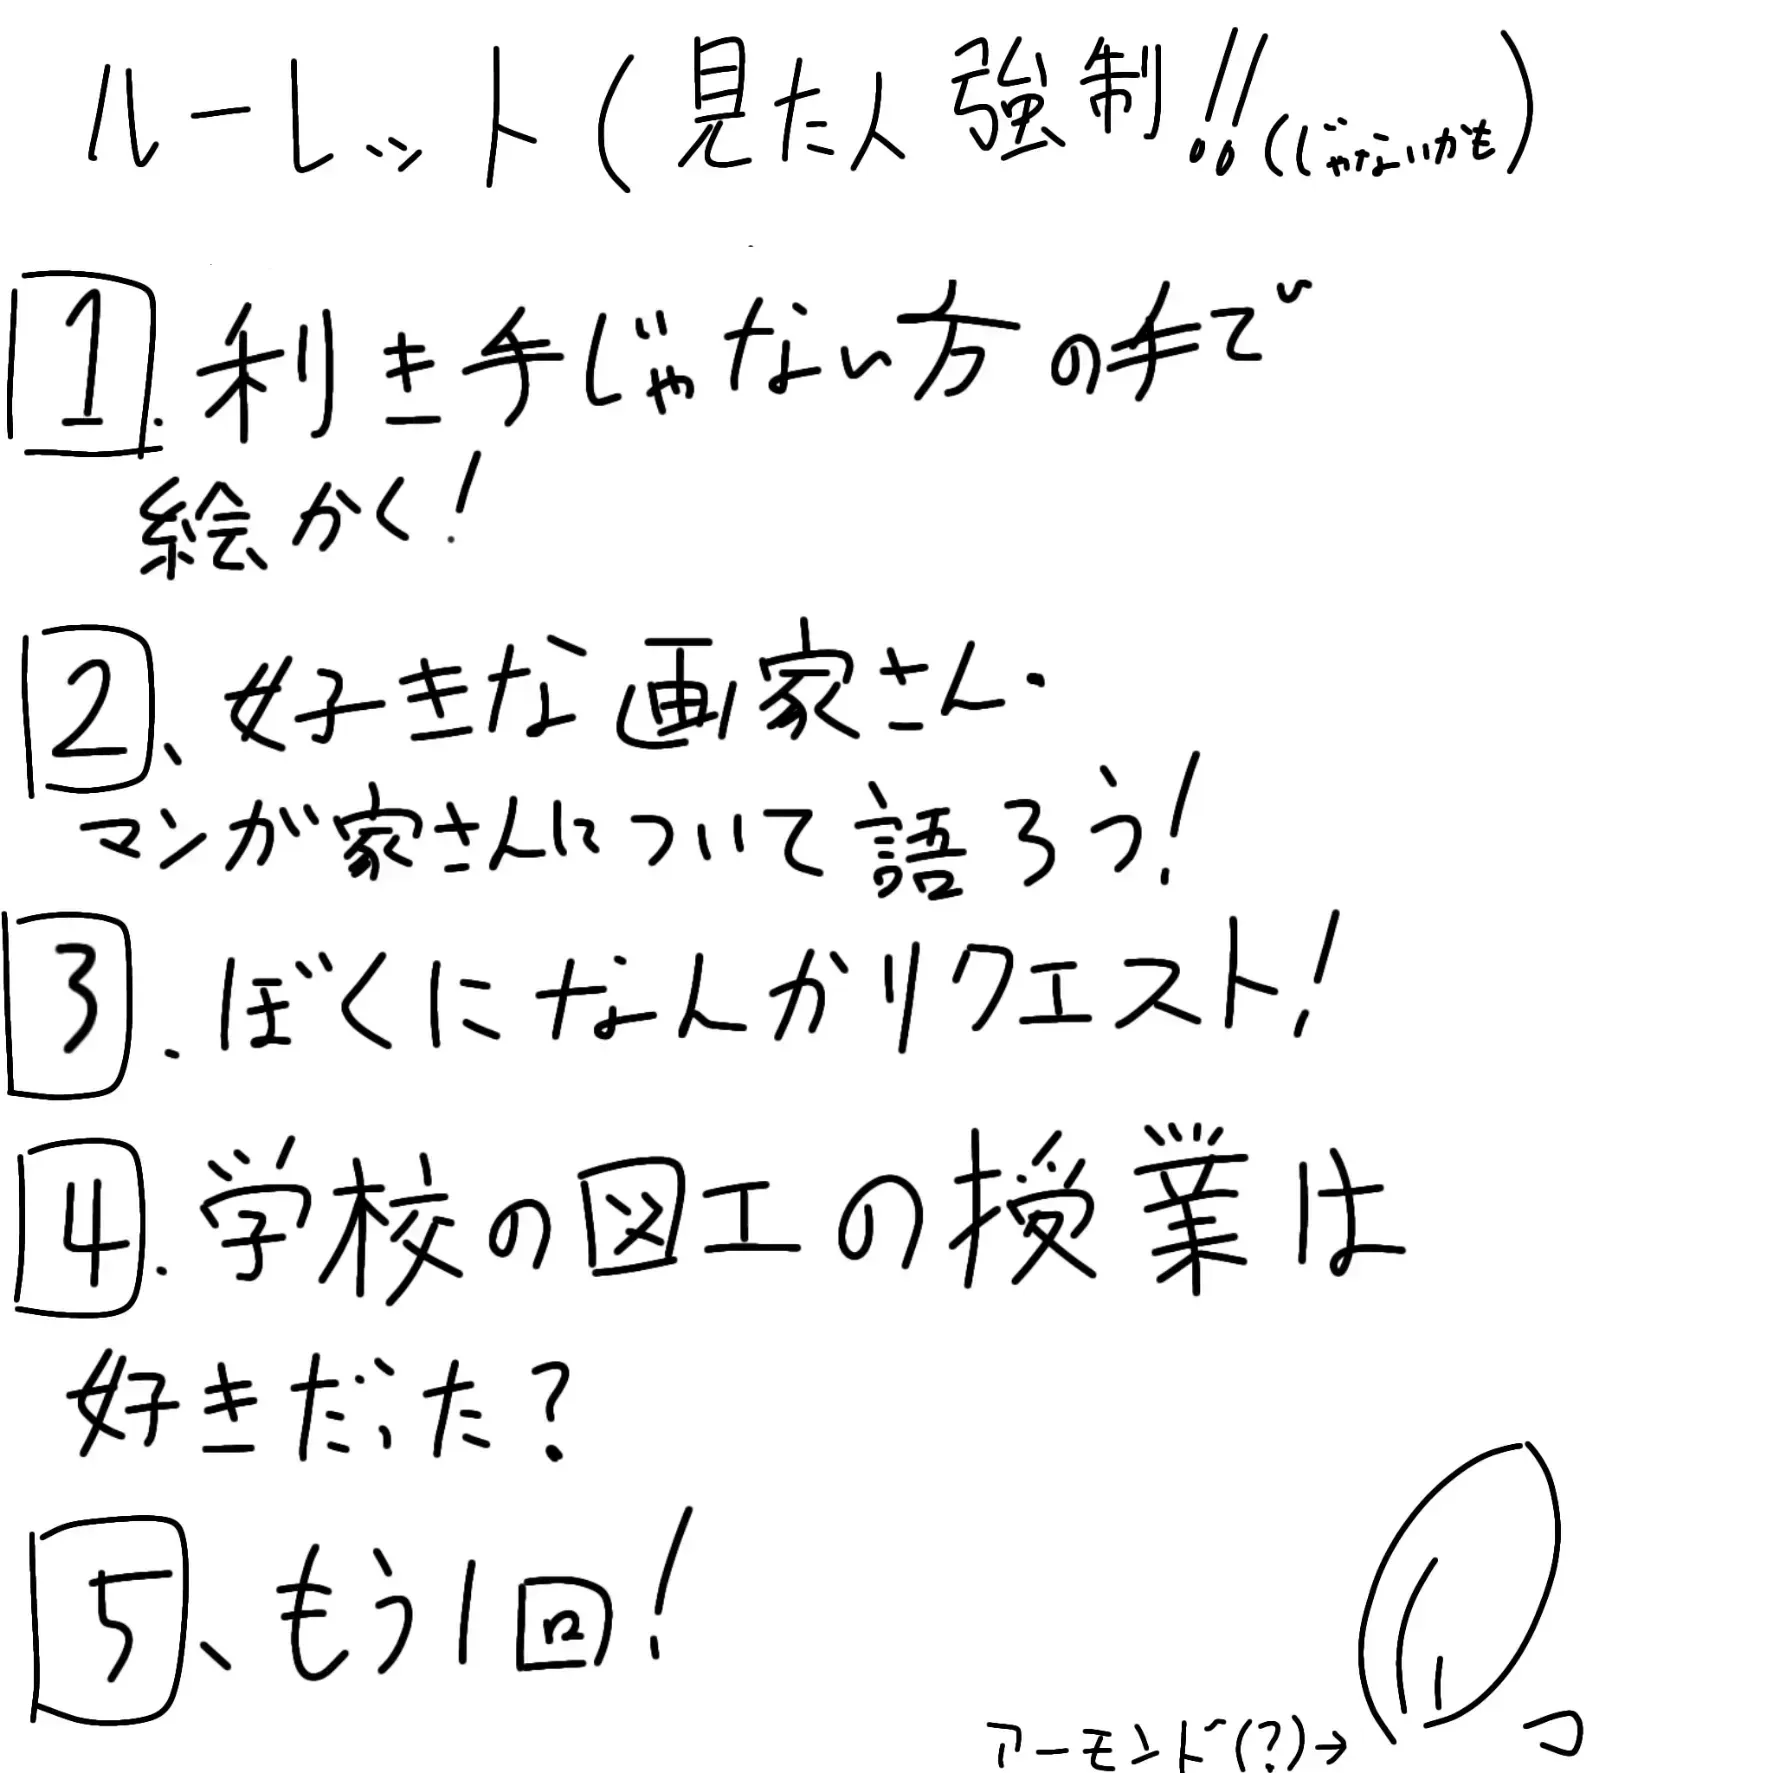 ルーレット(見た人強制!!(じゃないかも)
1.利き手じゃない方の手で
絵かく!
2、好きな画家さん・
マンガ家さんについて語ろう!
3.ぼくになんかリクエスト!
4.学校の図工の授業は
好きだった?
5、もう1回!
アーモンド(?)→